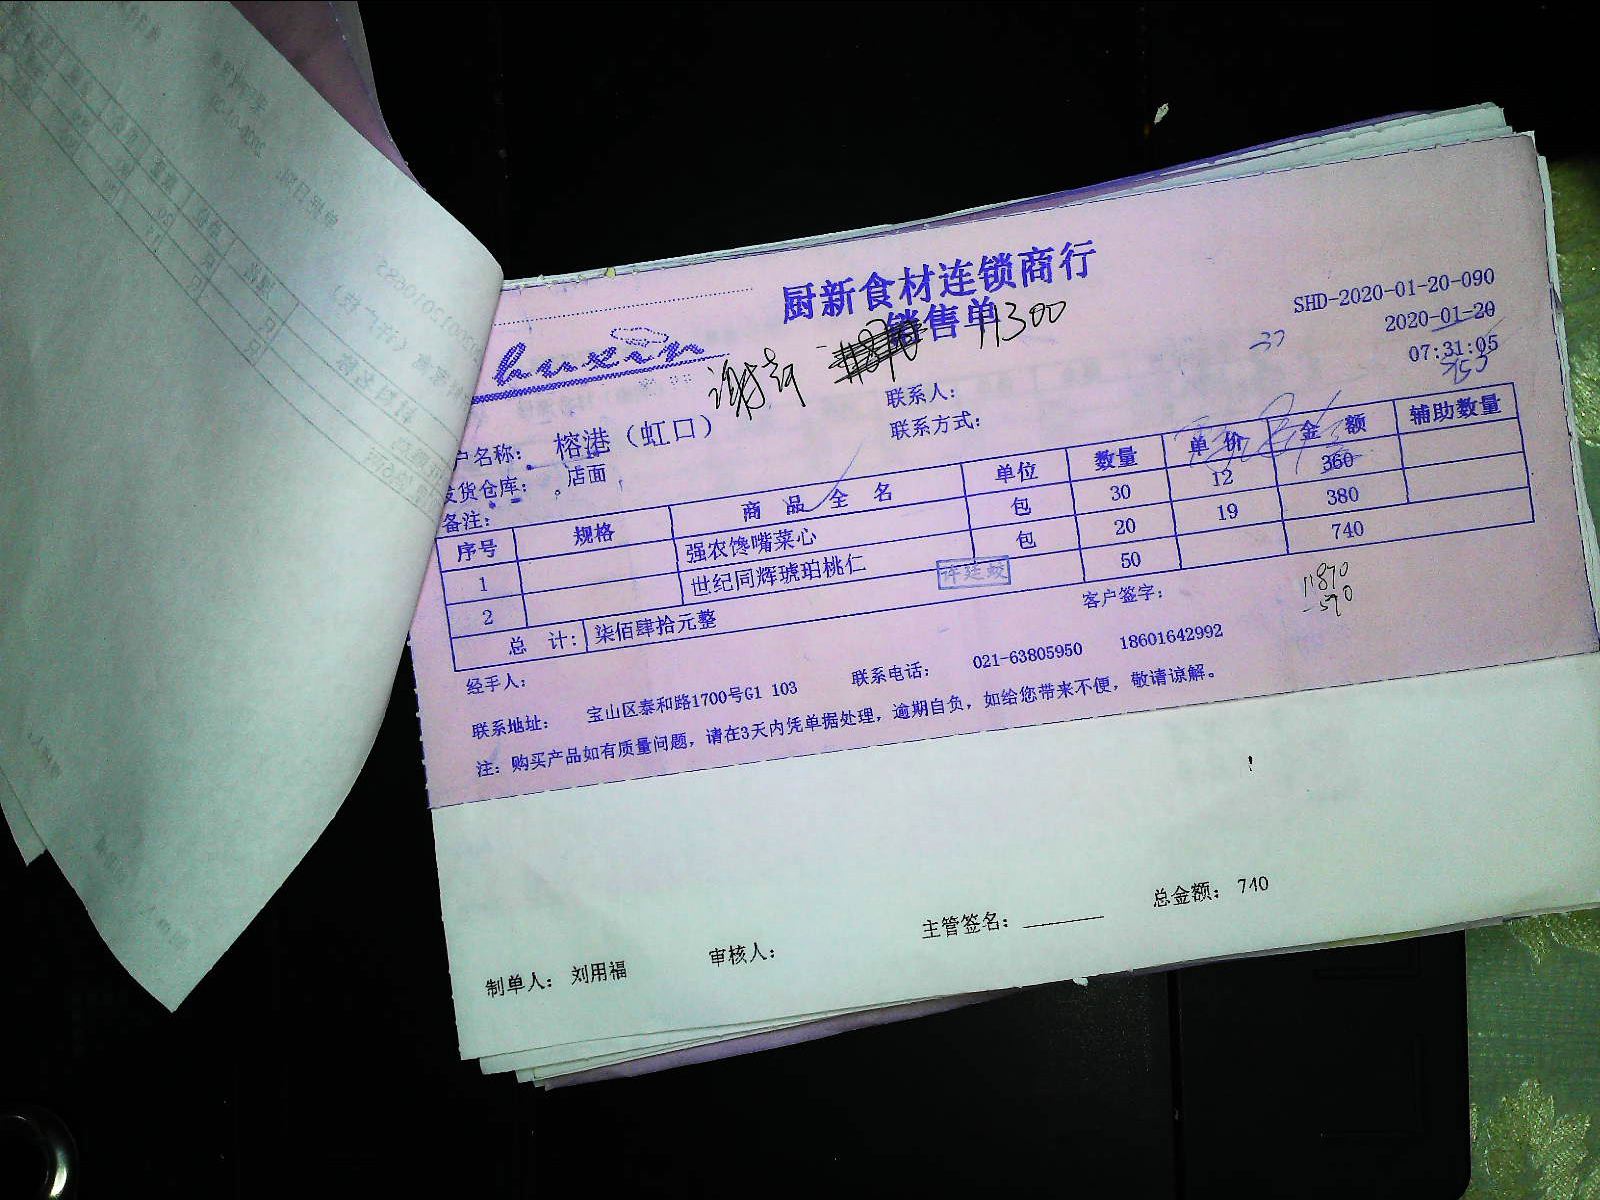 厨新食材连锁商行
销售单
11300
SHD-2020-01-20-090
2020-01-20
07:31:05
huxin
联系人：
联系方式：
户名称： 榕港（虹口）
发货仓库： 店面
备注：
序号 规格 商品全名 单位 数量 单价 金额 辅助数量
1 强农馋嘴菜心 包 30 12 360
2 世纪同辉琥珀桃仁 包 20 19 380
总 计： 柒佰肆拾元整 50 740
许廷蛟
经手人： 客户签字：
11870
-570
联系地址： 宝山区泰和路1700号G1 103 联系电话： 021-63805950 18601642992
注：购买产品如有质量问题，请在3天内凭单据处理，逾期自负，如给您带来不便，敬请谅解。
制单人： 刘用福 审核人： 主管签名： 总金额： 740